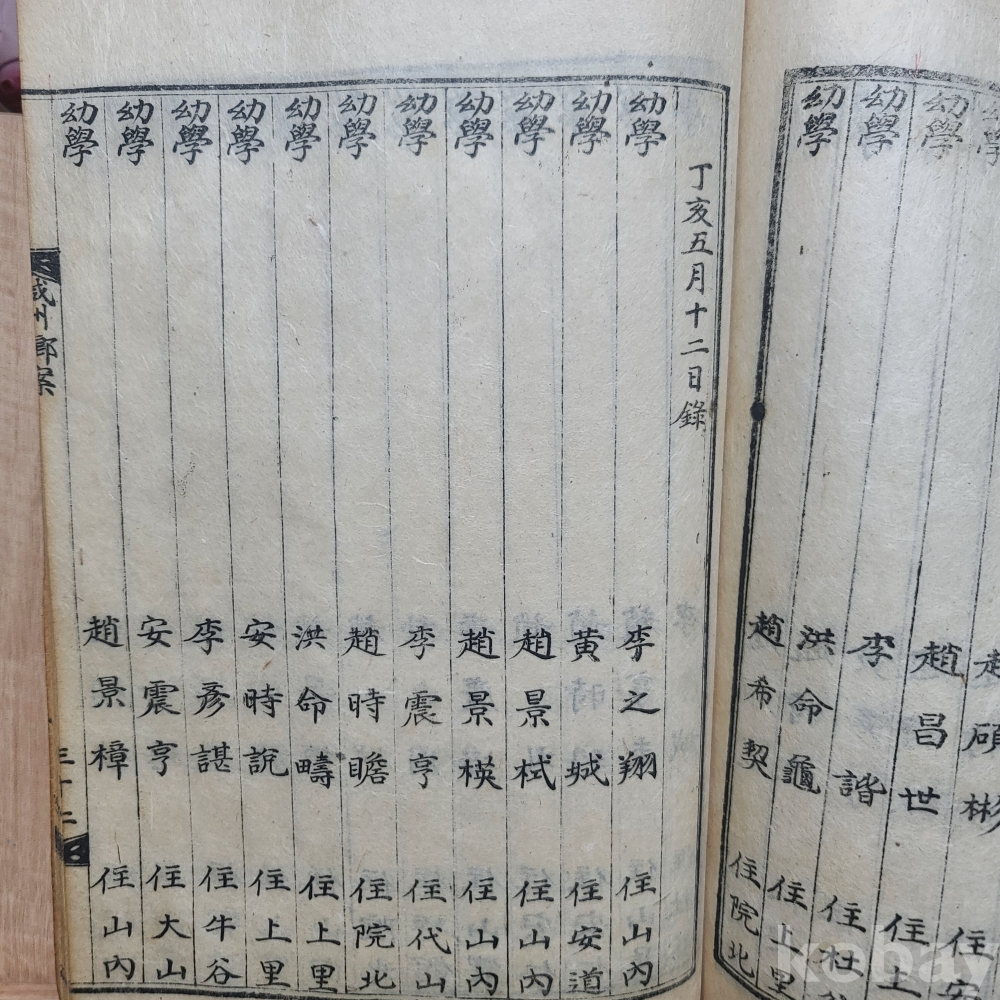 幼學 趙碩彬 住安
幼學 趙昌世 住上
幼學 李諧 住杜
幼學 洪命龜 住上里
幼學 趙希契 住院北
丁亥五月十二日錄
幼學 李之翔 住山內
幼學 黃時城 住安道
幼學 趙景栻 住山內
幼學 趙景楧 住山內
幼學 李震亨 住代山
幼學 趙時瞻 住院北
幼學 洪命疇 住上里
幼學 安時說 住上里
幼學 李彥諶 住牛谷
幼學 安震亨 住大山
幼學 趙景樟 住山內
咸州鄉案 三十二
kobay